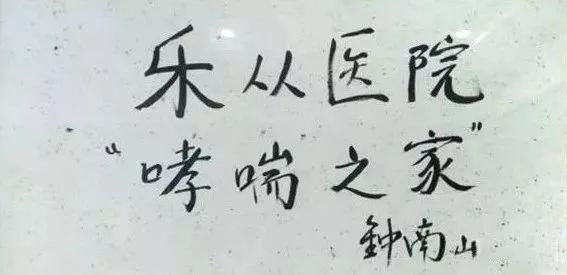 乐从医院
“哮喘之家”
鍾南山